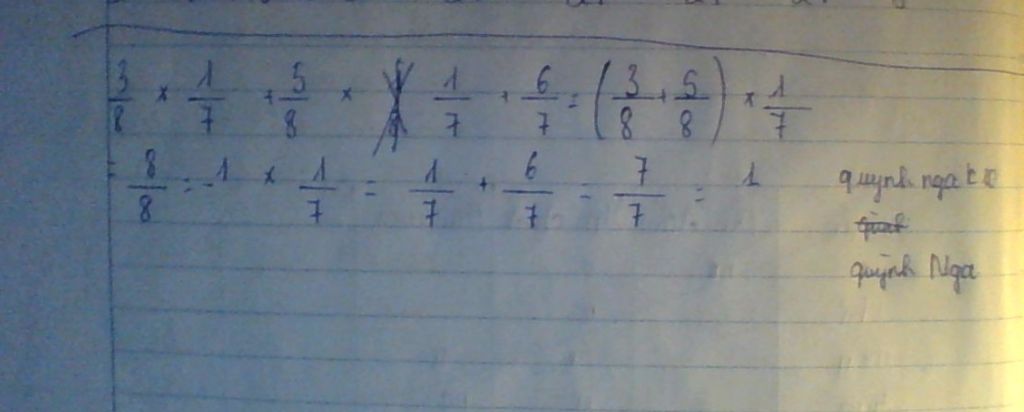 3/8 × 1/7 + 5/8 × 1/7 + 6/7 = (3/8 + 5/8) × 1/7
= 8/8 = 1 × 1/7 = 1/7 + 6/7 = 7/7 = 1
quynh nga
quỳnh Nga